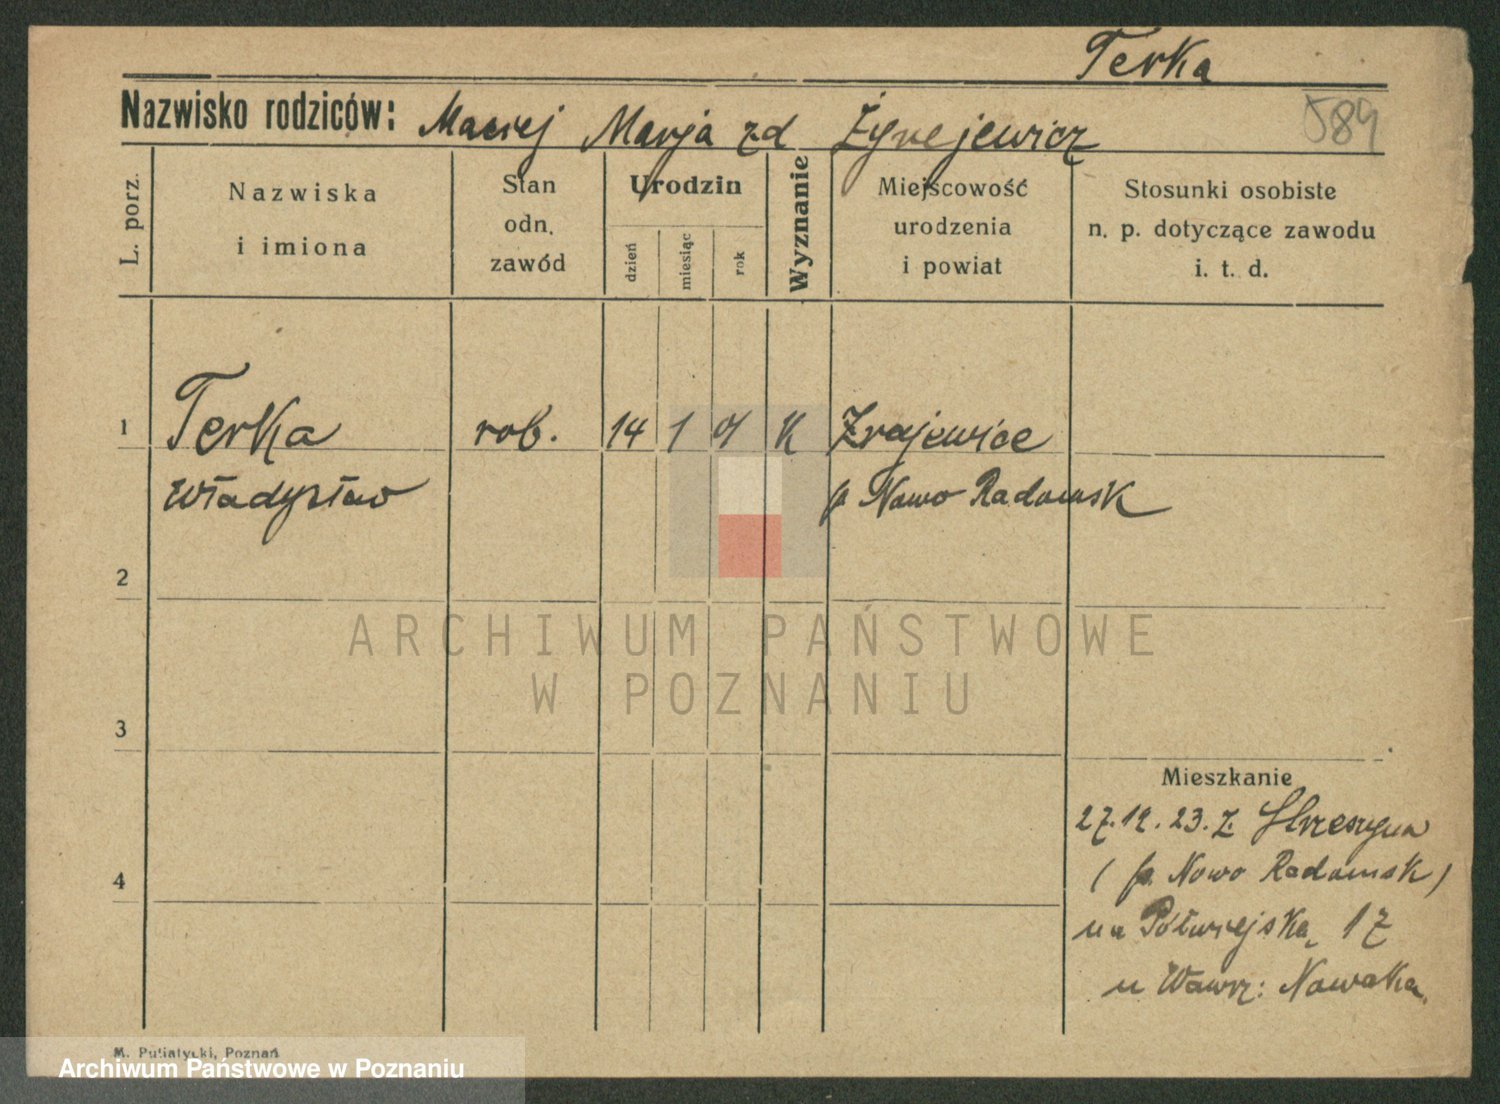 Terka
Nazwisko rodziców: Maciej Marja zd Żyrejewicz
589
L. porz.
Nazwiska i imiona
Stan odn. zawód
Urodzin
dzień
miesiąc
rok
Wyznanie
Miejscowość urodzenia i powiat
Stosunki osobiste
n. p. dotyczące zawodu
i. t. d.
1 Terka rob. 14 1 K
Władysław p Nowo Radomsk
2
3
4
Mieszkanie
27.12.23. z
( p. Nowo Radomsk )
na Półwiejską 17
u Wawrz: Nowaka.
M. Putiatycki, Poznań
ARCHIWUM PAŃSTWOWE
W POZNANIU
Archiwum Państwowe w Poznaniu